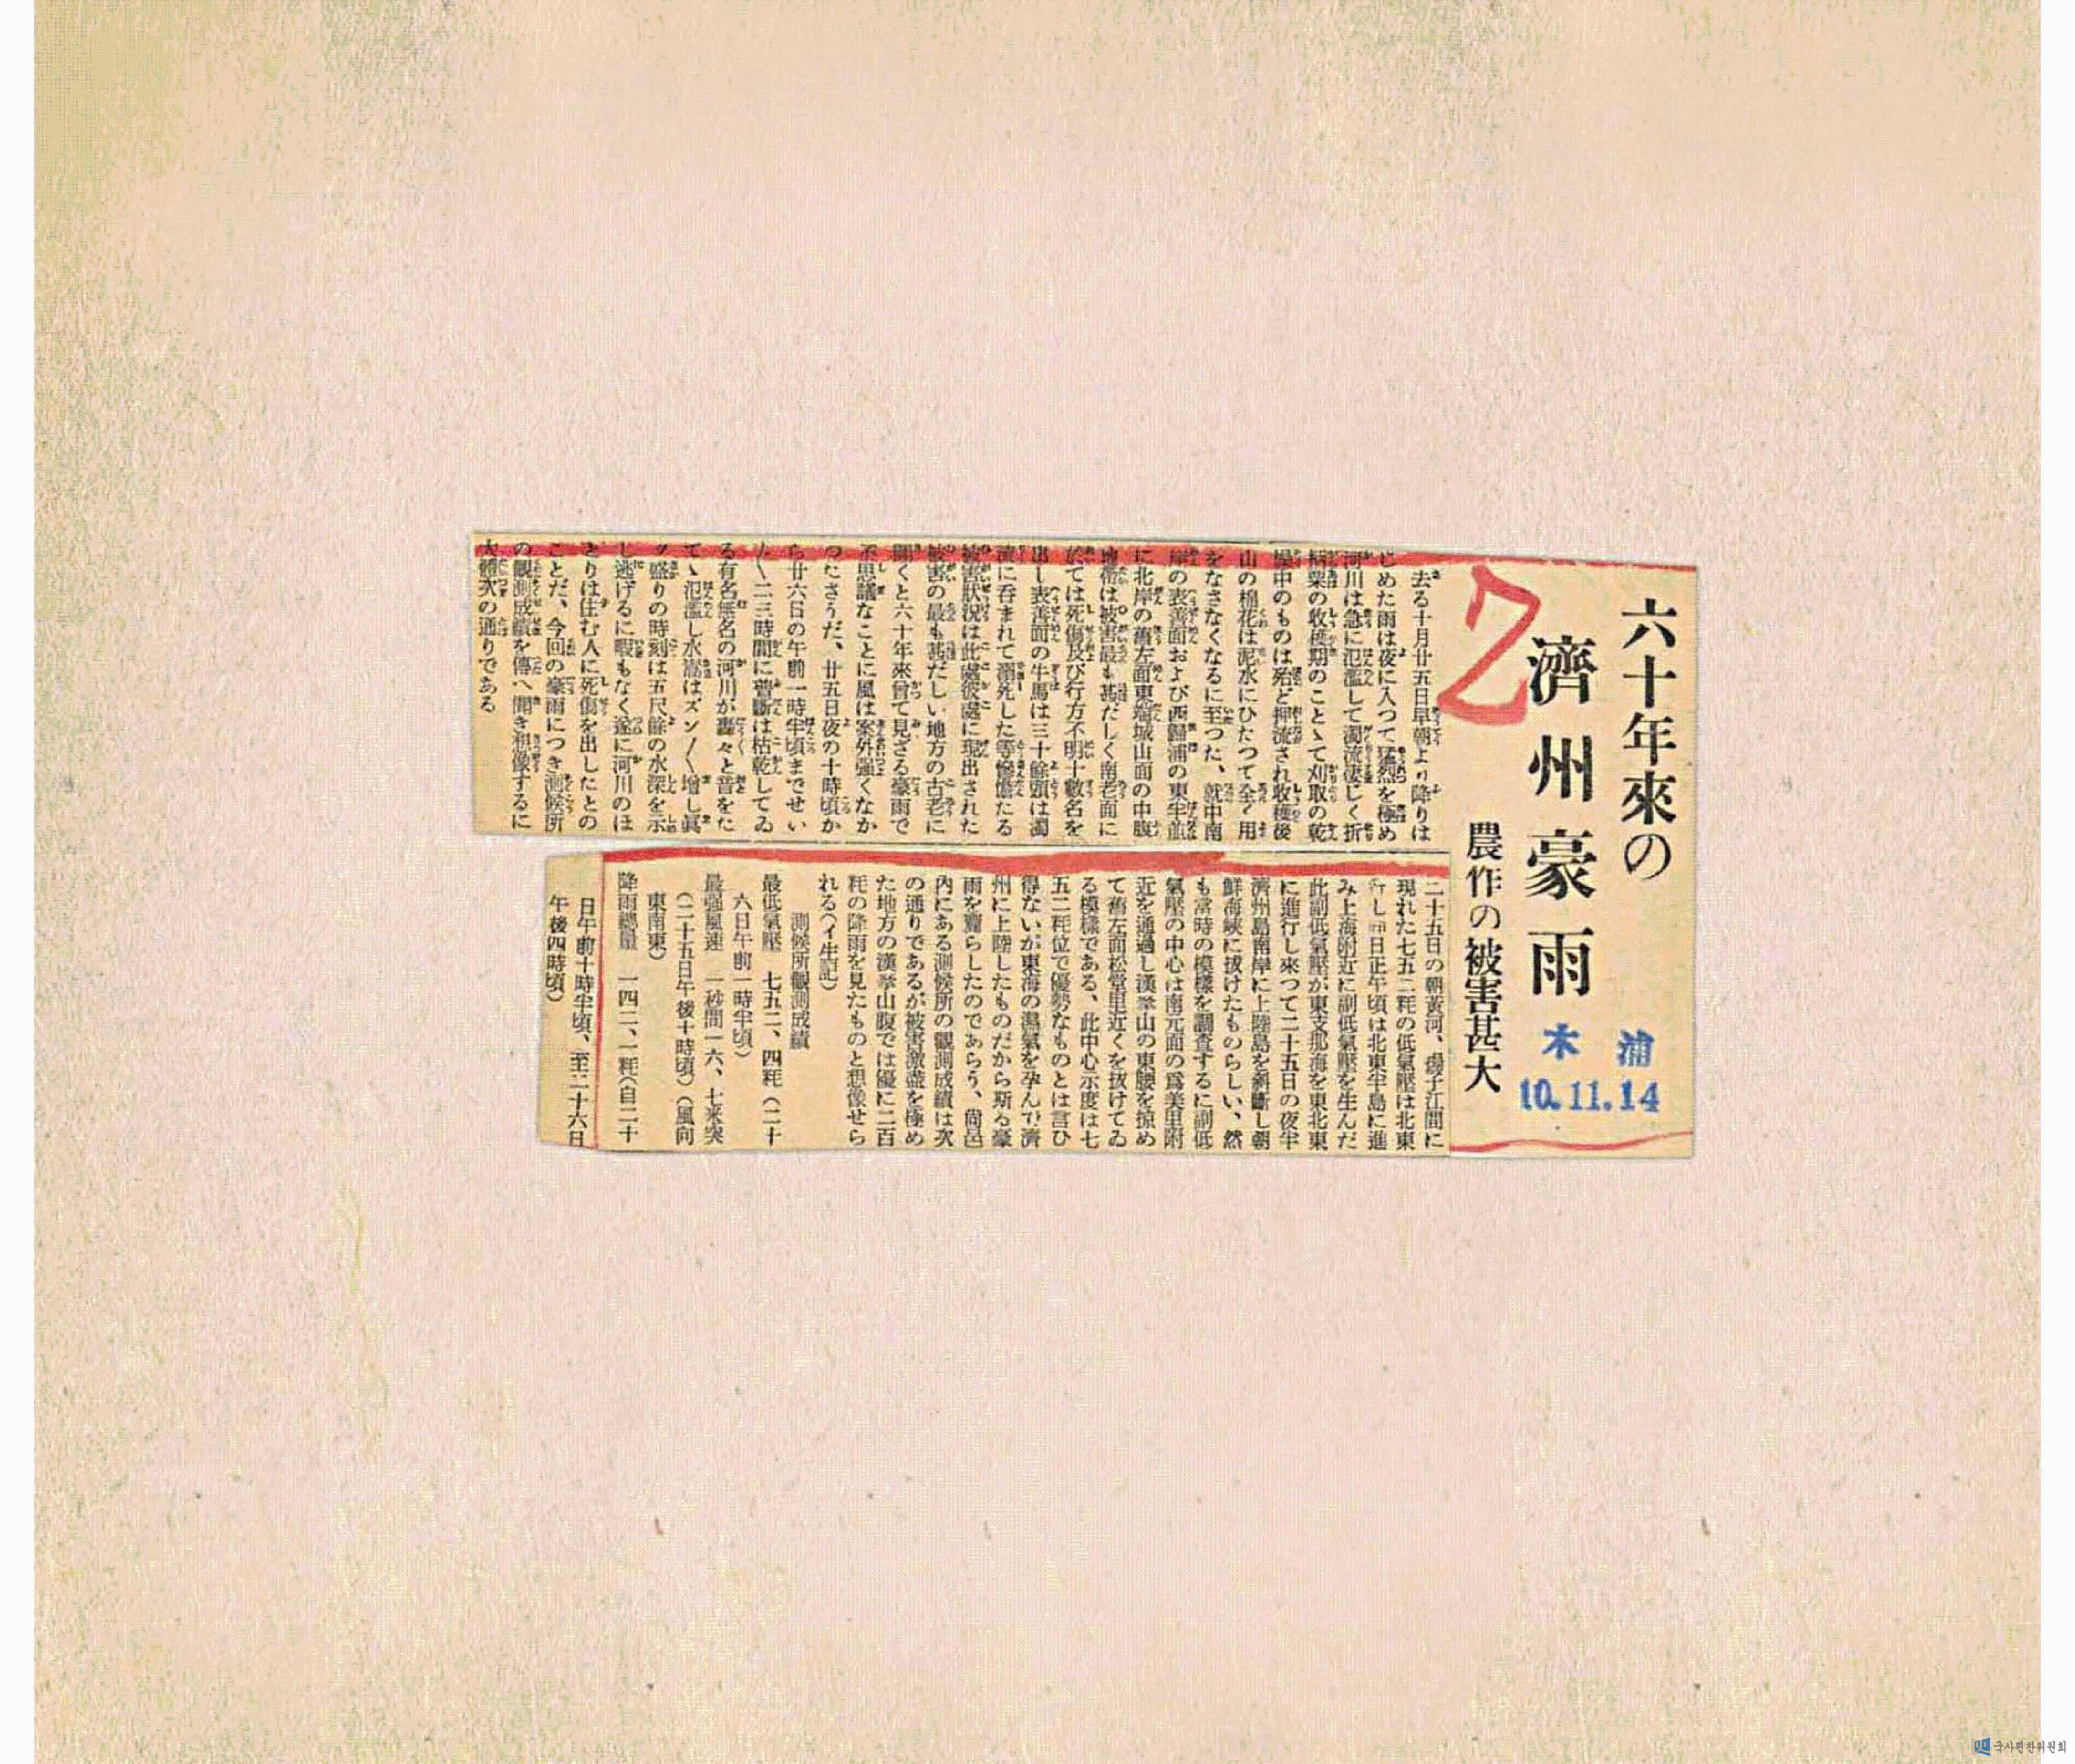 六十年來の
濟州豪雨
農作の被害甚大
木浦
10.11.14
去る十月廿五日早朝より降りは
じめた雨は夜に入つて猛烈を極め
河川は急に氾濫して濁流凄じく折
柄粟の收穫期のことゝて刈取の乾
燥中のものは殆ど押流され收穫後
山の棉花は泥水にひたつて全く用
をなさなくなるに至つた、就中南
岸の表善面および西歸浦の東半面
に北岸の舊左面東端城山面の中腹
地帶は被害最も甚だしく南老面に
於ては死傷及び行方不明十數名を
出し表善面の牛馬は三十餘頭は濁
流に呑まれて溺死した等慘憺たる
被害狀況は此處彼處に現出された
被害の最も甚だしい地方の古老に
聞くと六十年來曾て見ざる豪雨で
不思議なことに風は案外強くなか
つたさうだ、廿五日夜の十時頃か
ら廿六日の午前一時半頃までせい
／＼二三時間に普斷は枯乾してゐ
る有名無名の河川が轟々と音をた
てゝ氾濫し水嵩はズン／＼增し眞
ッ盛りの時刻は五尺餘の水深を示
し逃げるに暇もなく遂に河川のほ
とりは住む人に死傷を出したとの
ことだ、今回の豪雨につき測候所
の觀測成績を傳へ聞き想像するに
大體次の通りである
二十五日の朝黃河、揚子江間に
現れた七五二粍の低氣壓は北東
行し同日正午頃は北東半島に進
み上海附近に副低氣壓を生んだ
此副低氣壓が東支那海を東北東
に進行し來つて二十五日の夜半
濟州島南岸に上陸島を斜斷し朝
鮮海峽に拔けたものらしい、然
も當時の模樣を調査するに副低
氣壓の中心は南元面の爲美里附
近を通過し漢拏山の東腰を掠め
て舊左面松堂里近くを拔けてゐ
る模樣である、此中心示度は七
五二粍位で優勢なものとは言ひ
得ないが東海の濕氣を孕んで濟
州に上陸したものだから斯る豪
雨を齎らしたのであらう、尙邑
內にある測候所の觀測成績は次
の通りであるが被害激甚を極め
た地方の漢拏山腹では優に二百
粍の降雨を見たものと想像せら
れる（イ生記）
測候所觀測成績
最低氣壓　七五二、四粍（二十
六日午前一時半頃）
最强風速　一秒間一六、七米突
（二十五日午後十時頃）（風向
東南東）
降雨總量　一四二、一粍（自二十
日午前十時半頃、至二十六日
午後四時頃）
국사편찬위원회